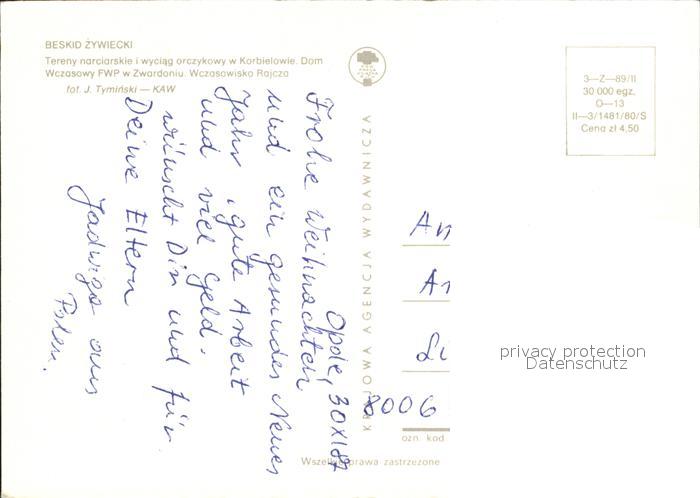 BESKID ŻYWIECKI
Tereny narciarskie i wyciąg orczykowy w Korbielowie. Dom
Wczasowy FWP w Zwardoniu. Wczasowisko Rajcza
fot. J. Tymiński — KAW
Opole, 30XI87
Frohe Weihnachten
und ein gesundes Neues
Jahr, gute Arbeit
und viel Geld,
wünscht Dir und für
Deine Eltern
Jadwiga aus
Polen.
KRAJOWA AGENCJA WYDAWNICZA
3—Z—89/II
30 000 egz.
O—13
II—3/1481/80/S
Cena zł 4,50
An
Ar
Li
8006
ozn. kod
Wszelkie prawa zastrzeżone
privacy protection
Datenschutz